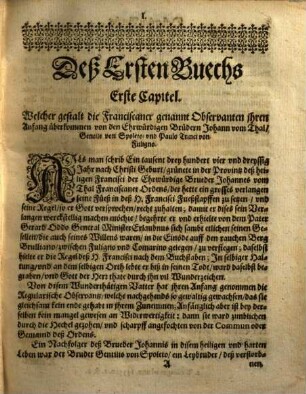 1.
Deß Ersten Buechs
Erste Capitel.
Welcher gestalt die Franciscaner genannt Observanten ihren
Anfang überkommen von den Ehrwürdigen Brüdern Johann vom Thal/
Gentils von Spoleto und Pauls Trinci von
Fuligno.
ALs man schrib Ein tausent drey hundert vier und dreyssig
Jahr nach Christi Geburt/ grünete in der Provintz deß hei-
ligen Francisci der Ehrwürdige Bruder Johannes vom
Thal Franciscaner Ordens/ der hette ein grosses verlangen
seine Füeß in deß H. Francisci Fueßstapffen zu setzen/ und
seine Regel/ so er Gott versprochen/ recht zuhalten; damit er dises sein Ver-
langen werckstellig machen möchte/ begehrte er und erhielte von dem Pater
Gerard Oddo General Minister Erlaubnus sich sambt etlichen seinen Ge-
sellen/ die auch seines Willens waren/ in die Einöde auff den rauchen Berg
Brulliano/ zwischen Fuligno und Camarino gelegen/ zu verfüegen; daselbst
hielte er die Regel deß H. Francisci nach dem Buchstaben; In selbiger Hal-
tung/ und an dem selbigen Orth lebte er biß in seinen Todt/ ward daselbst be-
graben/ und Gott der Herr ehrte durch ihn vil Wunderzeichen.
Von disem Wunderthätigen Vatter hat ihren Anfang genommen die
Regularische Observantz: welche nachgehends so gewaltig gewachsen/ daß sie
gleichsamb kein ende gehabt in ihrem Zunemmen; Anfänglich aber ist bey der-
selben kein mangel gewesen an Widerwertigkeit: dann sie ward zimblichen
durch die Hechel gezogen/ und scharpff angefochten von der Commun oder
Gemaind deß Ordens.
Ein Nachfolger deß Brueder Johannis in disem heiligen und harten
Leben war der Bruder Gentilis von Spoleto/ ein Leybruder/ deß verstorb-
A nen,